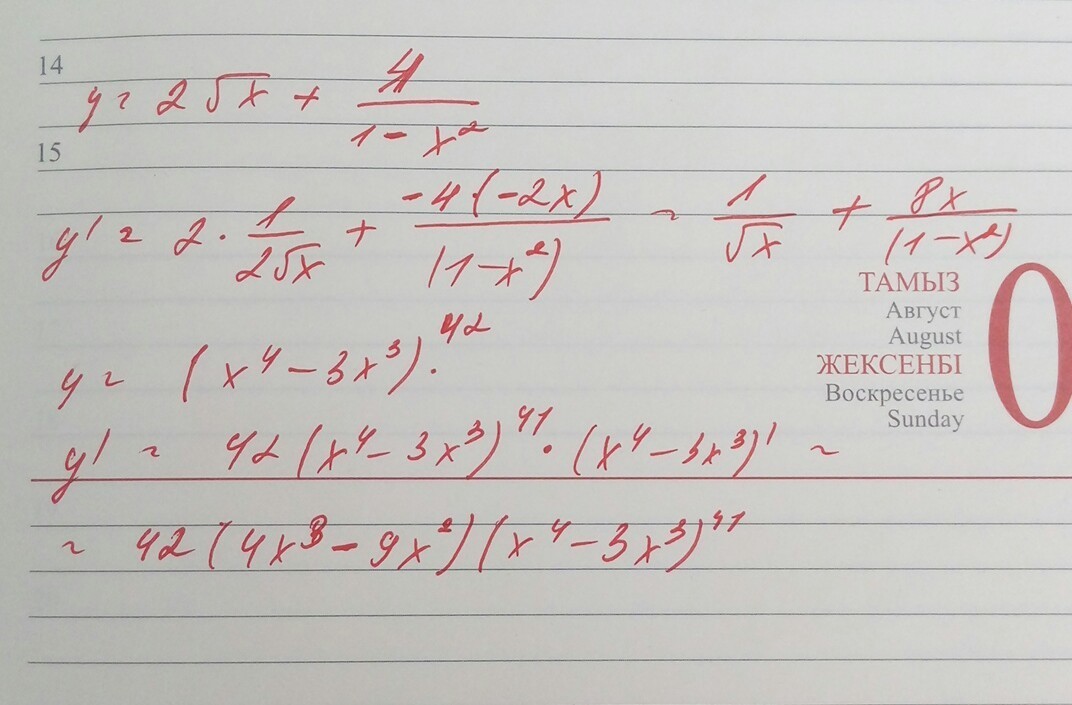 14
y = 2√x + 4/(1 - x²)
15
y' = 2 · 1/(2√x) + -4(-2x)/(1-x²) = 1/√x + 8x/(1-x²)
ТАМЫЗ
Август
August
ЖЕКСЕНБІ
Воскресенье
Sunday
0
y = (x⁴ - 3x³)·⁴²
y' = 42(x⁴ - 3x³)⁴¹ · (x⁴ - 3x³)' =
= 42(4x³ - 9x²)(x⁴ - 3x³)⁴¹